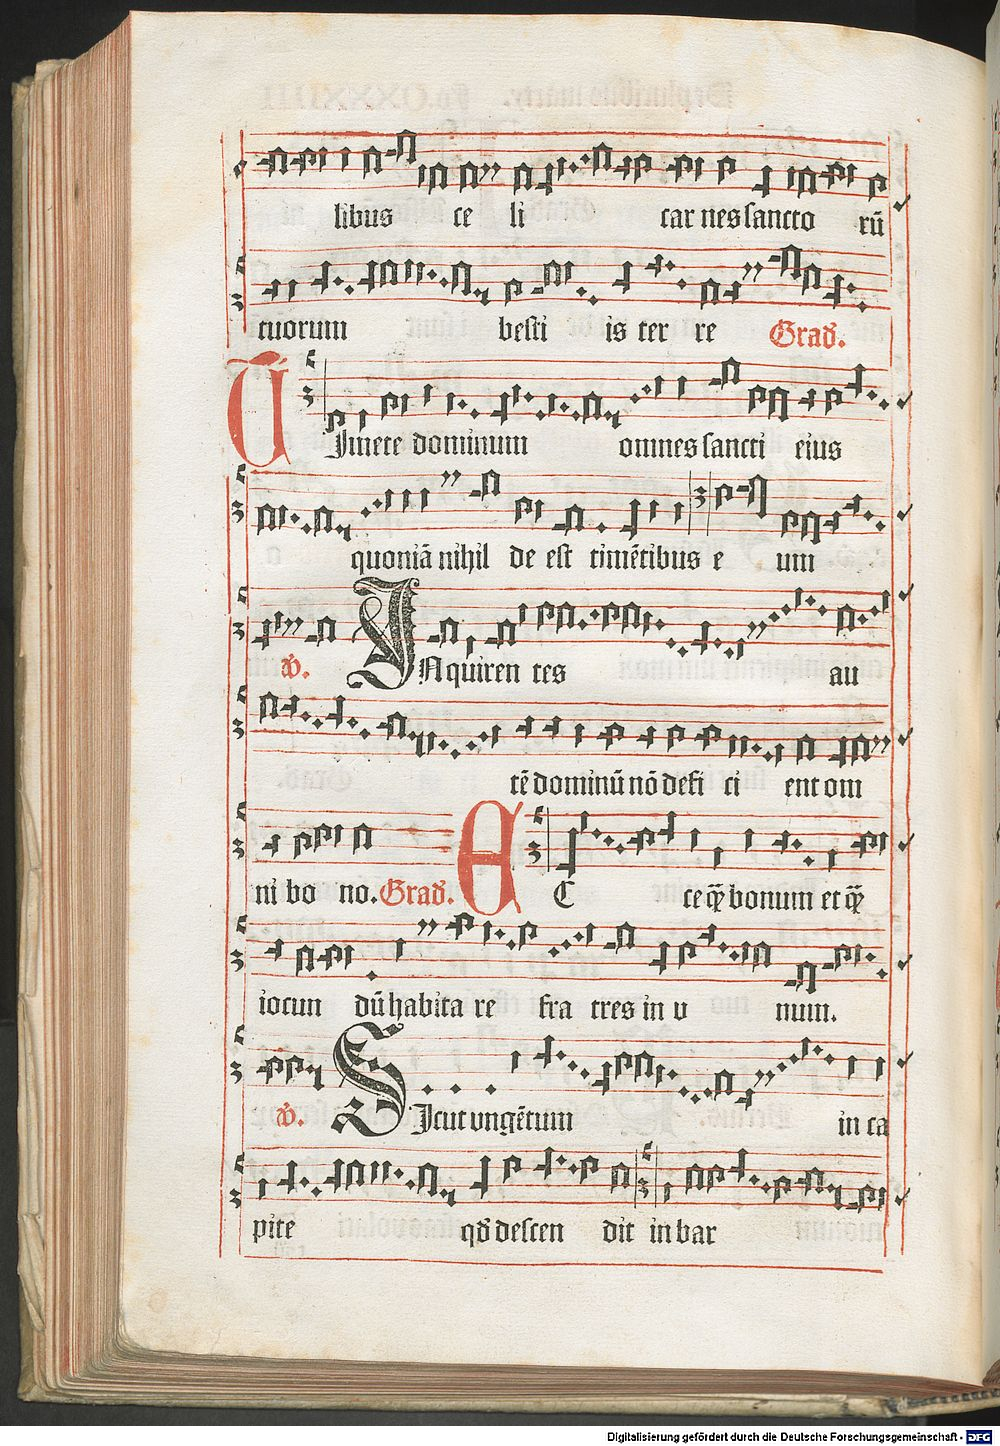 libus ce li car nes sancto rū
tuorum besti is ter re Grad.
TImete dominum omnes sancti eius
quoniā nihil de est timētibus e um
V. INquiren tes au
tē dominū nō defi ci ent om
ni bo no. Grad. EC ce q̄ bonum et q̄
iocun dū habita re fra tres in v num.
V. SIcut vngētum in ca
pite qd descen dit in bar
Digitalisierung gefördert durch die Deutsche Forschungsgemeinschaft - DFG